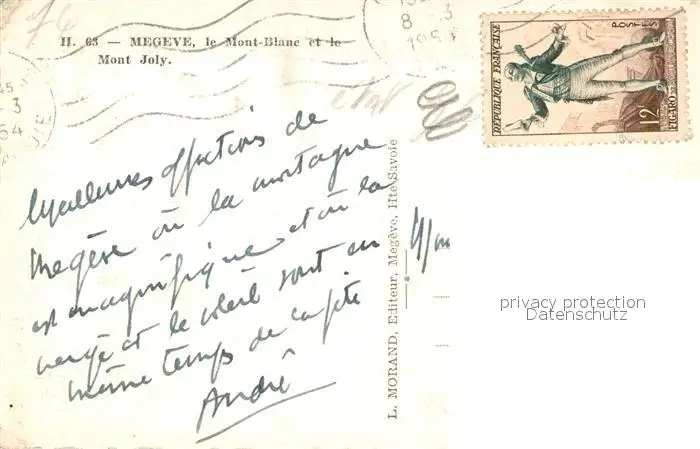 H. 63 — MEGEVE, le Mont-Blanc et le
Mont Joly.
REPUBLIQUE FRANÇAISE
POSTES
12F
FIGARO
8 3
195
3
54
Meilleures affections de
Megève où la montagne
est magnifique et où la
neige et le soleil sont en
même temps de la fête
André
L. MORAND, Editeur, Megève, Hte-Savoie
privacy protection
Datenschutz